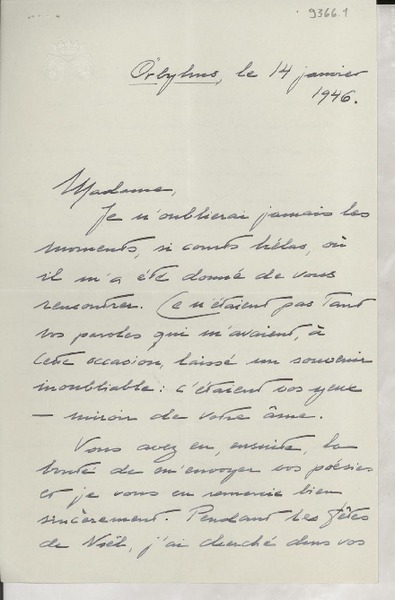 9366.1
Örbyhus, le 14 janvier
1946.
Madame,
Je n'oublierai jamais les
moments, si courts hélas, où
il m'a été donné de vous
rencontrer. Ce n'étaient pas tant
vos paroles qui m'avaient, à
cette occasion, laissé un souvenir
inoubliable: c'étaient vos yeux
— miroir de votre âme.
Vous avez eu, ensuite, la
bonté de m'envoyer vos poésies
et je vous en remercie bien
sincèrement. Pendant les fêtes
de Noël, j'ai cherché dans vos